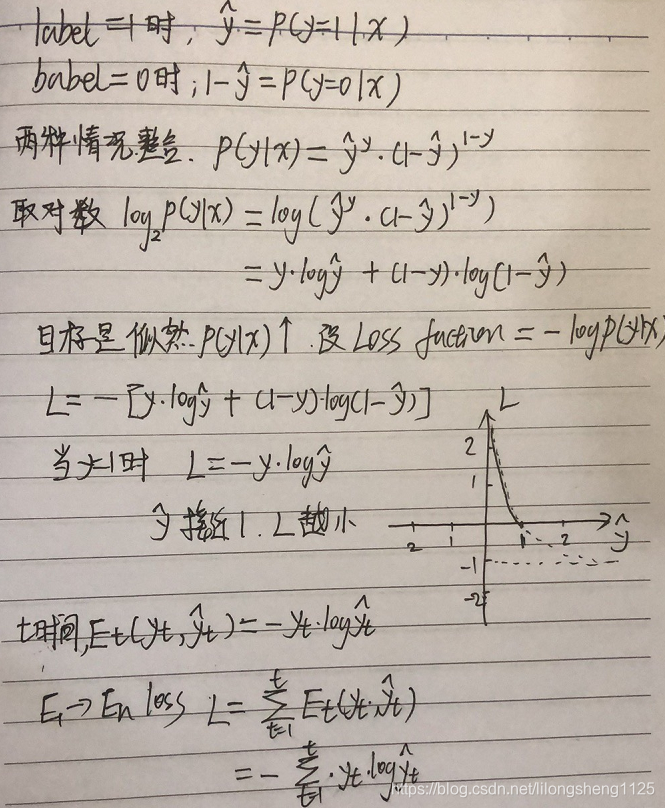 label=1时; ŷ=P(y=1|x)
babel=0时; 1-ŷ=P(y=0|x)
两种情况整合. P(y|x)=ŷ^y·(1-ŷ)^{1-y}
取对数 log_2 P(y|x)=log(ŷ^y·(1-ŷ)^{1-y})
=y·logŷ+(1-y)·log(1-ŷ)
目标是似然P(y|x)↑.设Loss fuction=-logP(y|x)
L=-[y·logŷ+(1-y)·log(1-ŷ)]
当y=1时 L=-y·logŷ
ŷ接近1.L越小
L
2
1
2 1 1 2 ŷ
-1
-2
t时间,E_t(y_t,ŷ_t)=-y_t·logŷ_t
E_1→E_n loss L=∑_{t=1}^{t}E_t(y_t,ŷ_t)
=-∑_{t=1}^{t}·y_t·logŷ_t
https://blog.csdn.net/lilongsheng1125